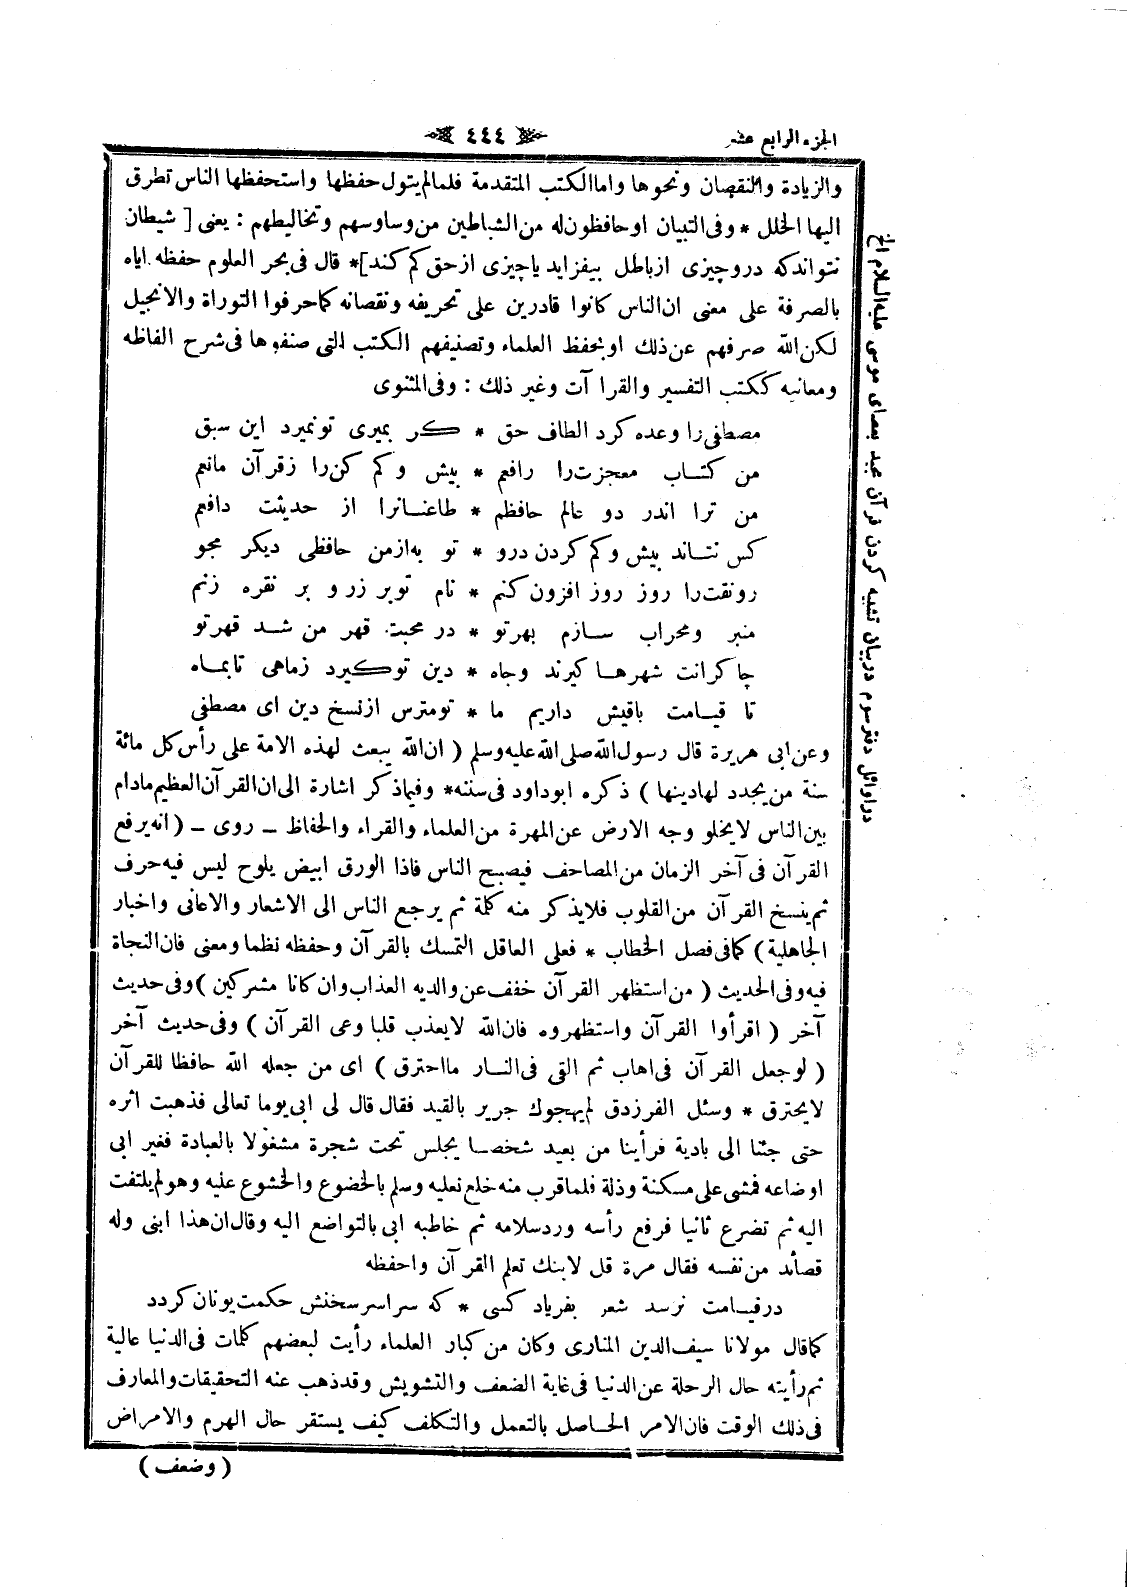 الجزء الرابع عشر
٤٤٤
والزيادة والنقصان ونحوها واما الكتب المتقدمة فلما لم يتول حفظها واستحفظها الناس تطرق
اليها الخلل * وفى التبيان او حافظون له من الشياطين من وساوسهم وتخاليطهم : يعنى [ شيطان
نتواندكه دروچيزى ازباطل بيفزايد ياچيزى ازحق كم كند ]* قال فى بحر العلوم حفظه اياه
بالصرفة على معنى ان الناس كانوا قادرين على تحريفه ونقصانه كما حرفوا التوراة والانجيل
لكن الله صرفهم عن ذلك او بحفظ العلماء وتصنيفهم الكتب التى صنفوها فى شرح الفاظه
ومعانيه ككتب التفسير والقراآت وغير ذلك : وفى المثنوى
مصطفى را وعده كرد الطاف حق * كر بميرى تونميرد اين سبق
من كتاب معجزت را رافعم * بيش وكم كن را زقرآن مانعم
من ترا اندر دو عالم حافظم * طاعنانرا از حديثت دافعم
كس نتاند بيش وكم كردن درو * تو به ازمن حافظى ديكر مجو
رونقت را روز روز افزون كنم * نام توبر زر و بر نقره زنم
منبر ومحراب سازم بهرتو * در محبت قهر من شد قهرتو
چاكرانت شهرها كيرند وجاه * دين توكيرد زماهى تابماه
تا قيامت باقيش داريم ما * تومترس ازنسخ دين اى مصطفى
وعن ابى هريرة قال رسول الله صلى الله عليه وسلم ( ان الله يبعث لهذه الامة على رأس كل مائة
سنة من يجدد لها دينها ) ذكره ابوداود فى سننه* وفيما ذكر اشارة الى ان القرآن العظيم مادام
بين الناس لا يخلو وجه الارض عن المهرة من العلماء والقراء والحفاظ ـ روى ـ ( انه يرفع
القرآن فى آخر الزمان من المصاحف فيصبح الناس فاذا الورق ابيض يلوح ليس فيه حرف
ثم ينسخ القرآن من القلوب فلا يذكر منه كلمة ثم يرجع الناس الى الاشعار والاغانى واخبار
الجاهلية ) كما فى فصل الخطاب * فعلى العاقل التمسك بالقرآن وحفظه نظما ومعنى فان النجاة
فيه وفى الحديث ( من استظهر القرآن خفف عن والديه العذاب وان كانا مشركين ) وفى حديث
آخر ( اقرأوا القرآن واستظهروه فان الله لا يعذب قلبا وعى القرآن ) وفى حديث آخر
( لو جعل القرآن فى اهاب ثم القى فى النار ما احترق ) اى من جعله الله حافظا للقرآن
لا يحترق * وسئل الفرزدق لم يهجوك جرير بالقيد فقال قال لى ابى يوما تعالى فذهبت اثره
حتى جئنا الى بادية فرأينا من بعيد شخصا يجلس تحت شجرة مشغولا بالعبادة فغير ابى
اوضاعه فمشى على مسكنة وذلة فلما قرب منه خلع نعليه وسلم بالخضوع والخشوع عليه وهو لم يلتفت
اليه ثم تضرع ثانيا فرفع رأسه ورد سلامه ثم خاطبه ابى بالتواضع اليه وقال ان هذا ابنى وله
قصائد من نفسه فقال مرة قل لابنك تعلم القرآن واحفظه
درقيامت نرسد شعر بفرياد كسى * كه سراسر سخنش حكمت يونان كردد
كما قال مولانا سيف الدين المنارى وكان من كبار العلماء رأيت لبعضهم كلمات فى الدنيا عالية
ثم رأيته حال الرحلة عن الدنيا فى غاية الضعف والتشويش وقد ذهب عنه التحقيقات والمعارف
فى ذلك الوقت فان الامر الحاصل بالتعمل والتكلف كيف يستقر حال الهرم والامراض
( وضعف )
دراوائل دفتر سوم دربيان تشبيه كردن قرآن مجيد بعصاى موسى عليه السلام الخ